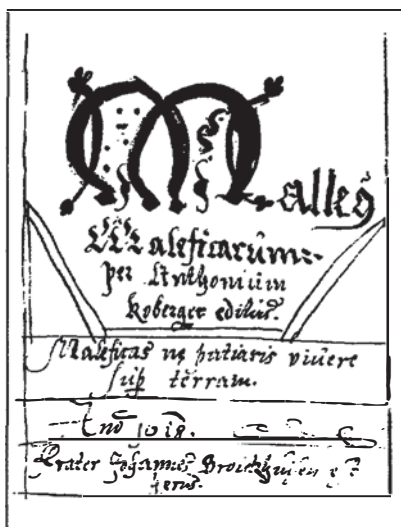 Malleꝰ
Maleficarum:
per Anthonium
Koberger editus.
Maleficas ne patiaris viuere
sup̲ terram.
1618.
Frater Johannes